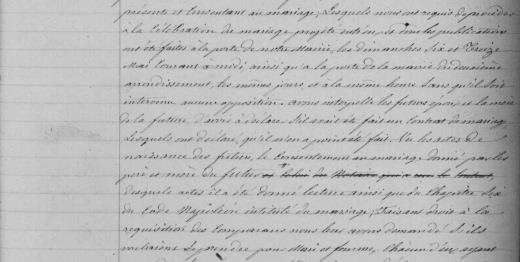 présente et Consentant au mariage; Lesquels nous ont requis de procéder
à la Célébration du mariage projeté entr'eux et dont les publications
ont été faites à la porte de notre Mairie, les dimanches Six et Treize
Mai Courant à midi, ainsi qu'à la porte de la mairie du deuxième
arrondissement, les mêmes jours, et à la même heure Sans qu'il Soit
intervenu aucune opposition. avons interpellé les futurs époux et la mère
de la future, d'avoir à déclarer S'il avait été fait un Contrat de mariage
Lesquels ont déclaré, qu'il n'en a point été fait. Vu les actes de
naissance des futurs, le Consentement au mariage donné par les
père et mère du futur
desquels actes il a été donné lecture ainsi que du Chapitre Six
du Code Napoléon intitulé du mariage; Faisant droit à la
requisition des Comparants nous leur avons demandé S'ils
voulaient Se prendre pour Mari et femme, Chacun d'eux ayant